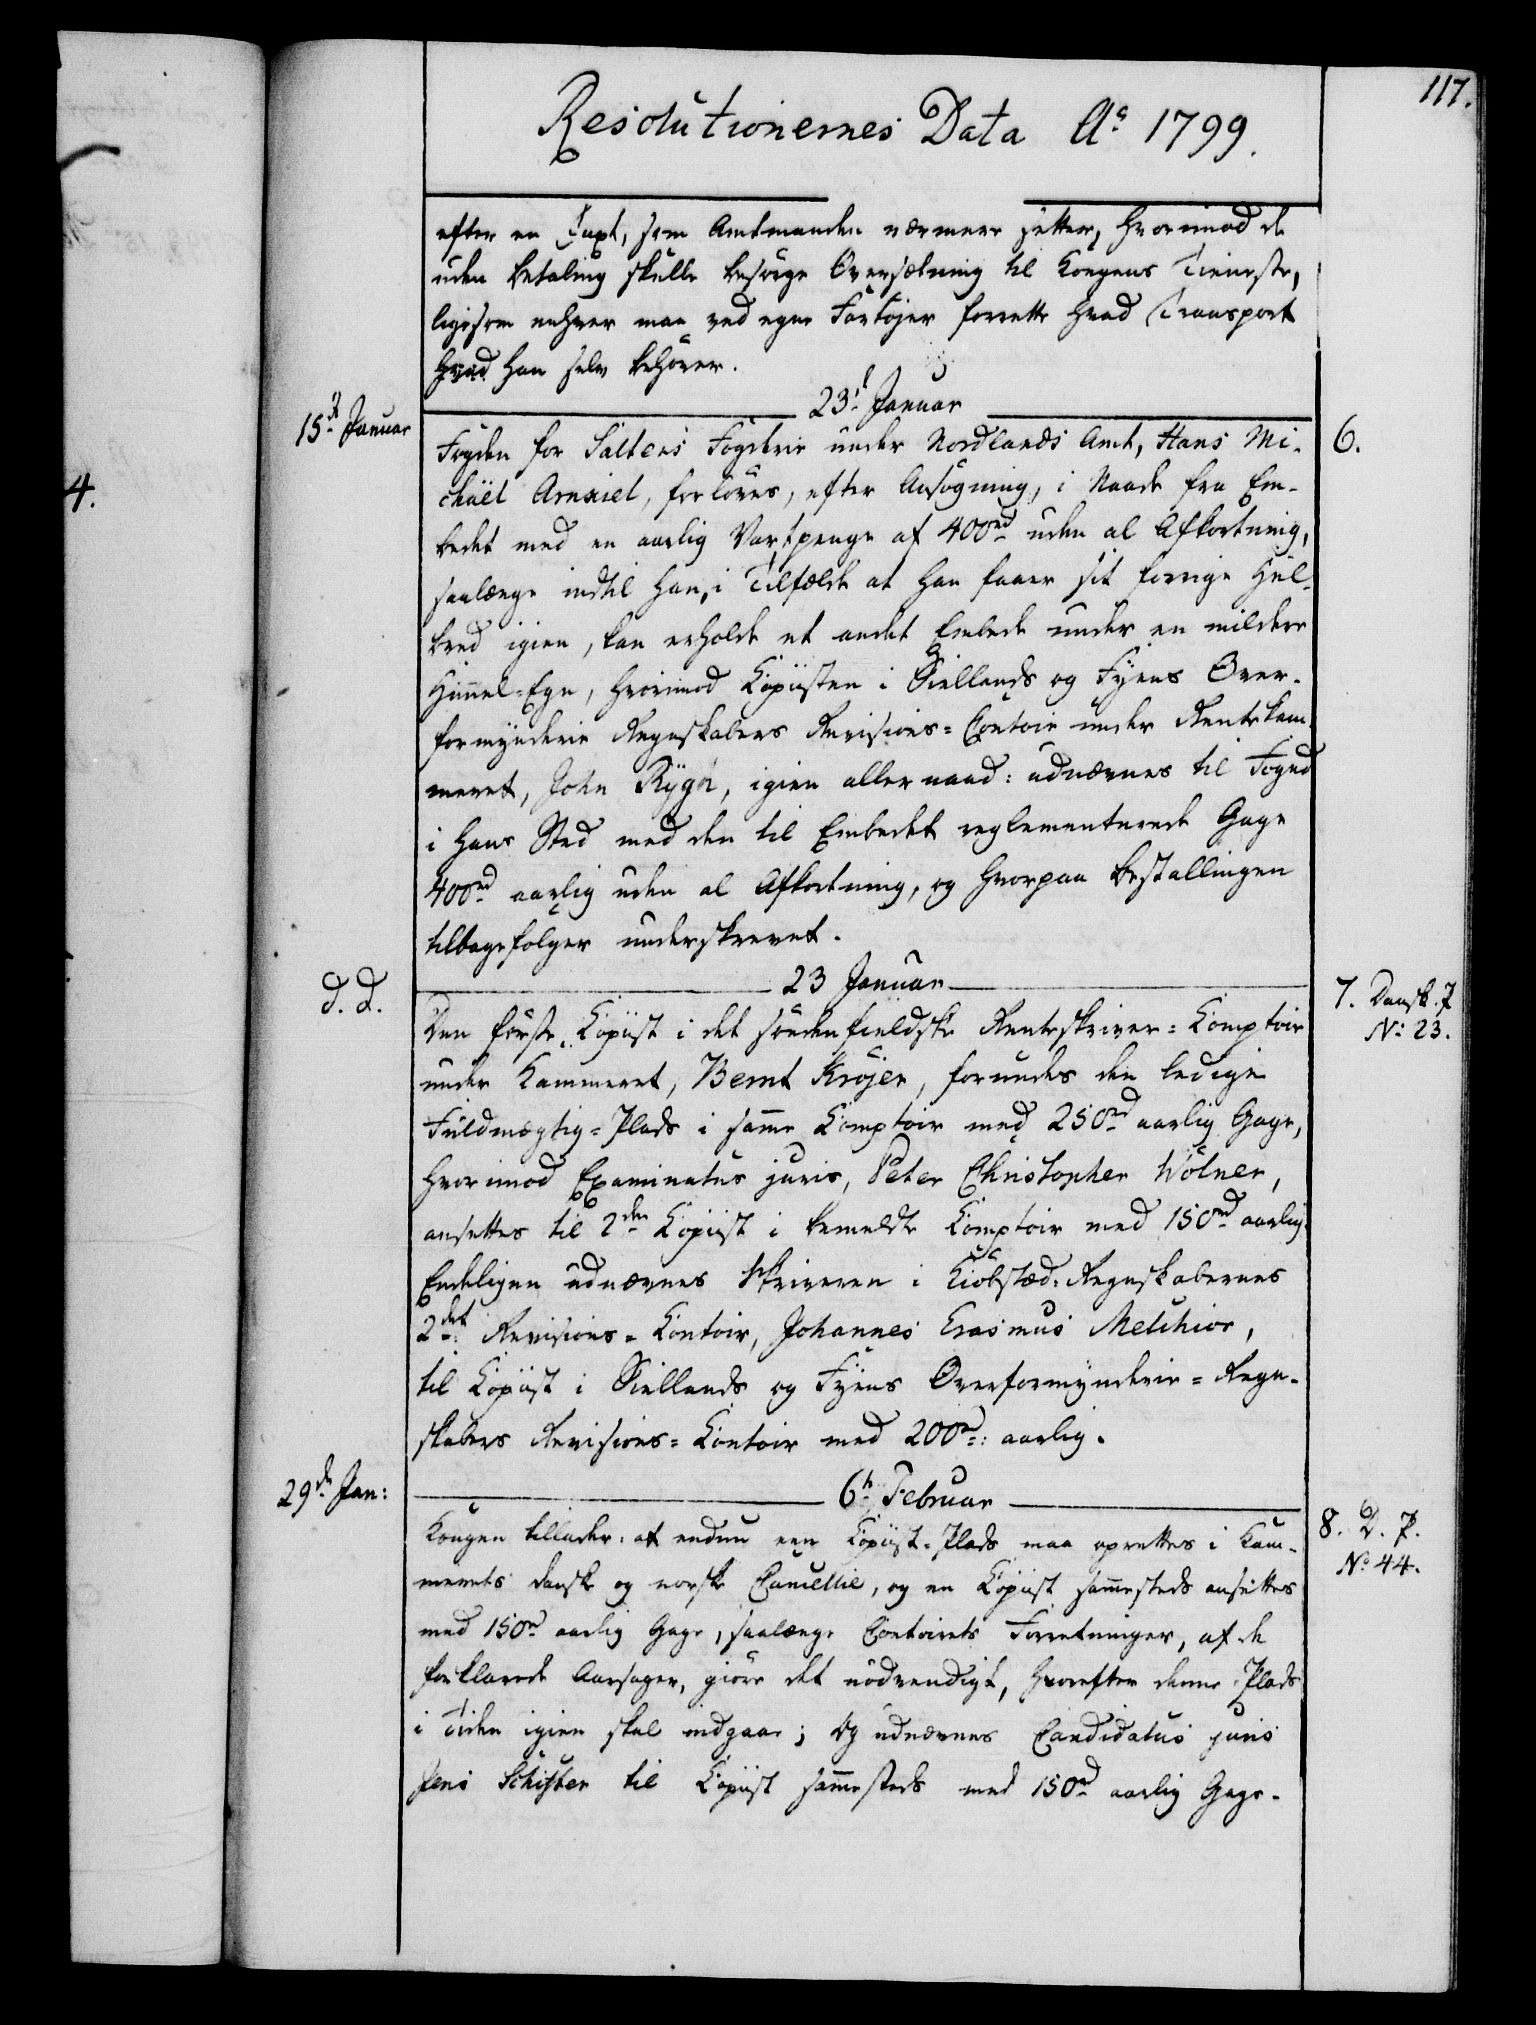 117.
Resolutionernes Data Aº 1799.
efter en Taxt, som Amtmanden nærmere sætter, hvorimod de
uden betaling skulle besørge Oversætning til Kongens Tieneste,
ligesom enhver maa ved egne Fartøjer forrette hvad Transport
hvad han selv behøver.
15d Januar
23d Januar
6.
Fogden for Saltens Fogderie under Nordlands Amt, Hans Mi-
chäel Arnxiel, forløves, efter Ansøgning, i Naade fra Em-
bedet med en aarlig Vartpenge af 400rd uden al Afkortning,
saalænge indtil han, i Tilfælde at han faaer sit forrige Hel-
bred igien, kan erholde et andet Embede under en mildere
Himmel-Egn, hvorimod Copiisten i Siellands og Fyens Over-
formynderie Regnskabers Revisions-Contoir under Rentekam-
meret, John Rÿgh, igien allernaad: udnævnes til Foged
i hans Sted med den til Embedet reglementerede Gage
400rd aarlig uden al Afkortning, og hvorpaa bestallingen
tilbagefølger underskrevet.
d. d.
23 Januar
7. Dansk. P
No 23.
Den første Copiist i det søndenfieldske Renteskriver-Comptoir
under Kammeret, Bernt Krøjer, forundes den ledige
Fuldmægtig-Plads i samme Comptoir med 250rd aarlig Gage,
hvorimod Examinatus juris, Peter Christopher Wölner,
ansettes til 2den Copiist i bemeldte Comptoir med 150rd aarlig.
Endeligen udnævnes Skriveren i Kiøbstæd-Regnskabernes
2det Revisions-Contoir, Johannes Erasmus Melchior,
til Copiist i Siellands og Fyens Overformynderie-Regn-
skabers Revisions-Contoir med 200rd: aarlig.
29d Jan:
6t Februar
8. D. P.
No 44.
Kongen tillader: at endnu een Copiist-Plads maa oprettes i Kam-
merets danske og norske Cancellie, og en Copiist sammesteds ansettes
med 150rd aarlig Gage, saalænge Contoirets Forretninger, af de
forklarede Aarsager, giøre det nødvendigt, hvorefter denne Plads
i Tiden igien skal indgaae; Og udnævnes Candidatus juris
Jens Schifter til Copiist sammesteds med 150rd aarlig Gage.
4.